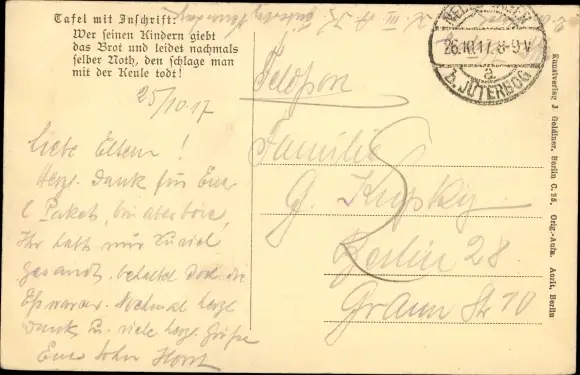 Tafel mit Inschrift:
Wer seinen Kindern giebt
das Brot und leidet nachmals
selber Noth, den schlage man
mit der Keule tod!
26.10.17. 8-9V
a
b. JÜTERBOG
Kunstverlag J. Goldiner, Berlin C. 25. Orig.-Aufn.
25/10.17
Liebe Eltern!
Herzl. Dank für Eure
2 Pakete, bin aber böse,
Ihr habt mir zu viel
gesandt, behaltet doch die
Eßwaren. Nochmal herzl
Dank u. viele herzl. Grüße
Euer Sohn Horst
Familie
G. Krupsky
Berlin 28
Graun Str 10